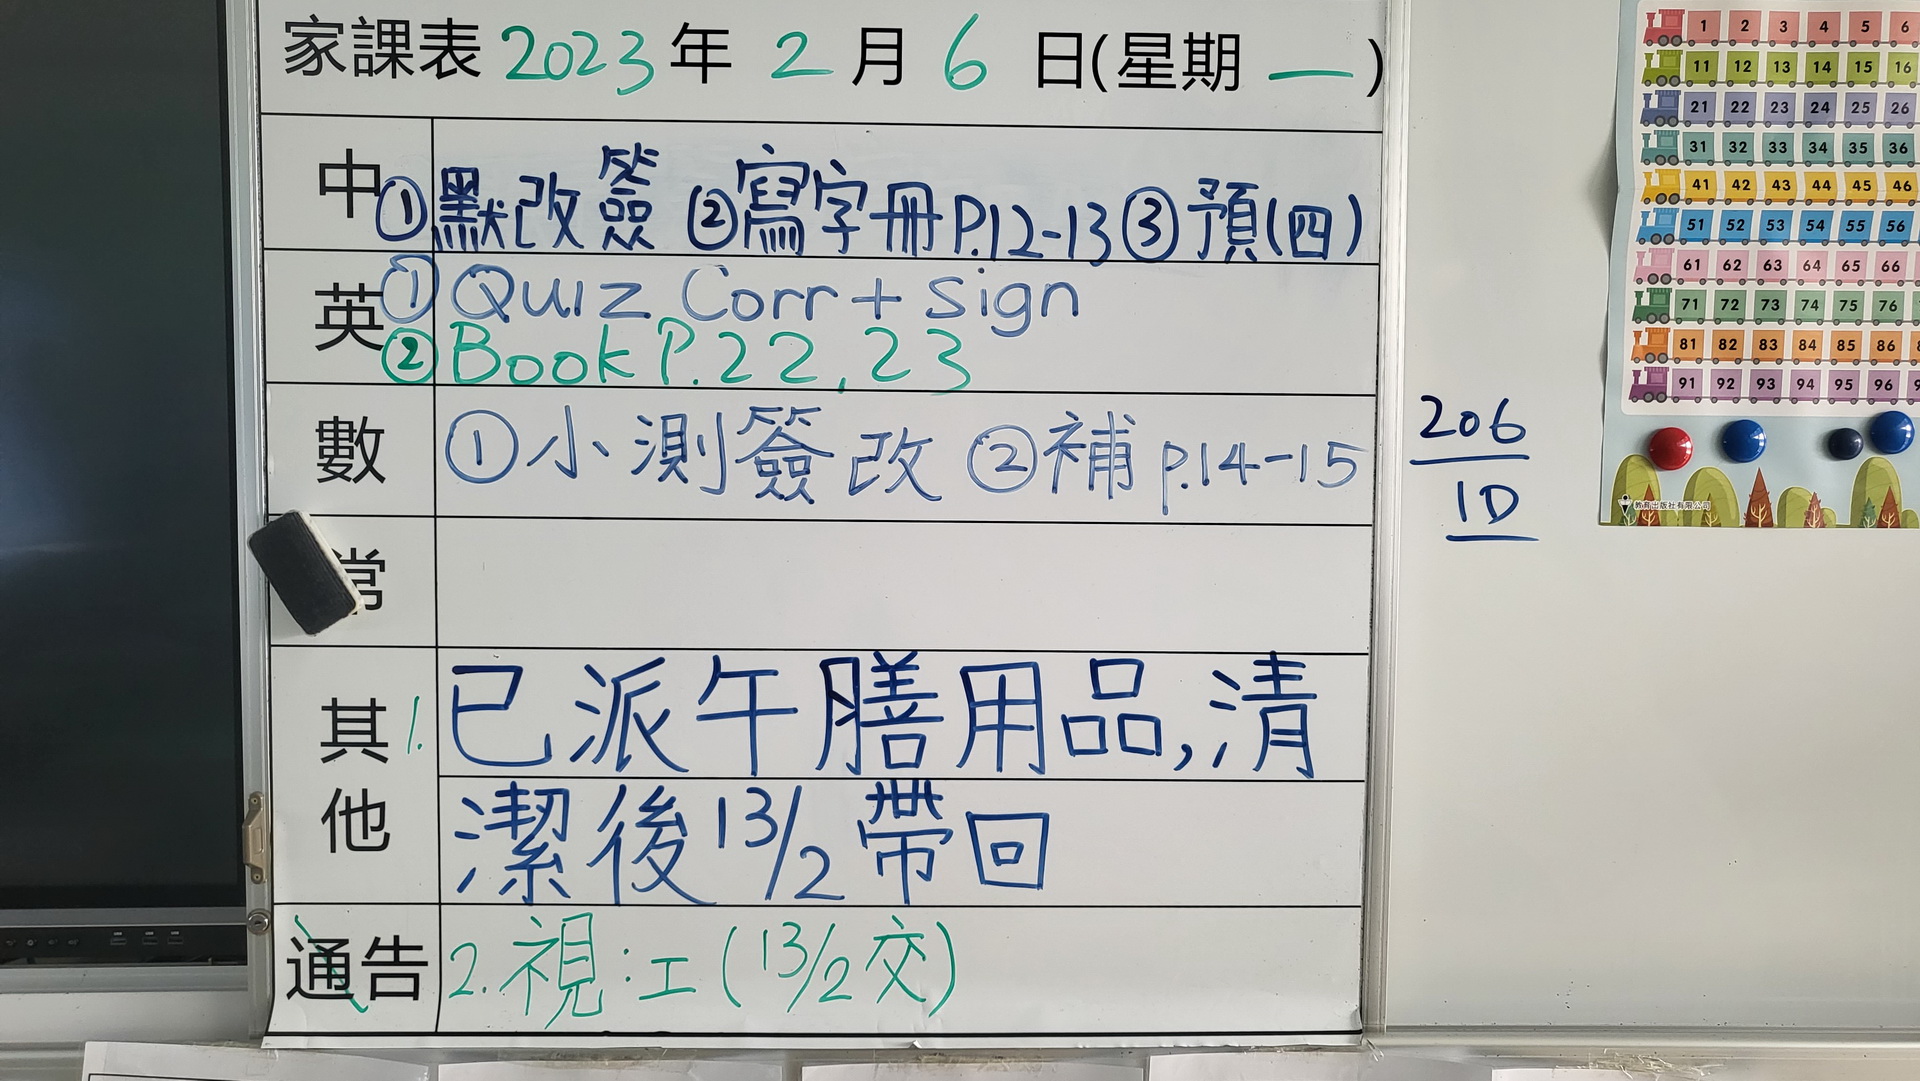 家課表 2023 年 2 月 6 日(星期 一)
中 ①默改簽 ②寫字冊P.12-13 ③預(四)
英 ① Quiz Corr + Sign
② Book P.22, 23
數 ①小測簽改 ②補 p.14-15
常
其他 1. 已派午膳用品,清
潔後 13/2 帶回
通告 2. 視:工 (13/2 交)
206
10
1 2 3 4 5 6
11 12 13 14 15 16
21 22 23 24 25 26
31 32 33 34 35 36
41 42 43 44 45 46
51 52 53 54 55 56
61 62 63 64 65 66
71 72 73 74 75 76
81 82 83 84 85 86
91 92 93 94 95 96
教育出版社有限公司